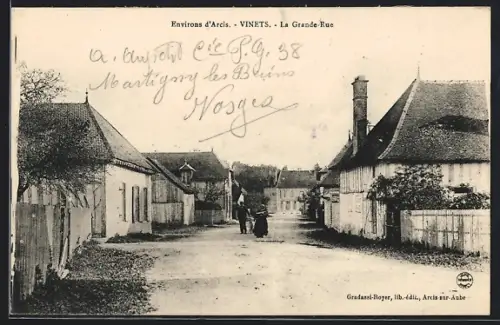 Environs d'Arcis. - VINETS. - La Grande-Rue
Cie P.G. 38
Martigny les Bains
Vosges
Gradassi-Royer, lib.-édit., Arcis-sur-Aube